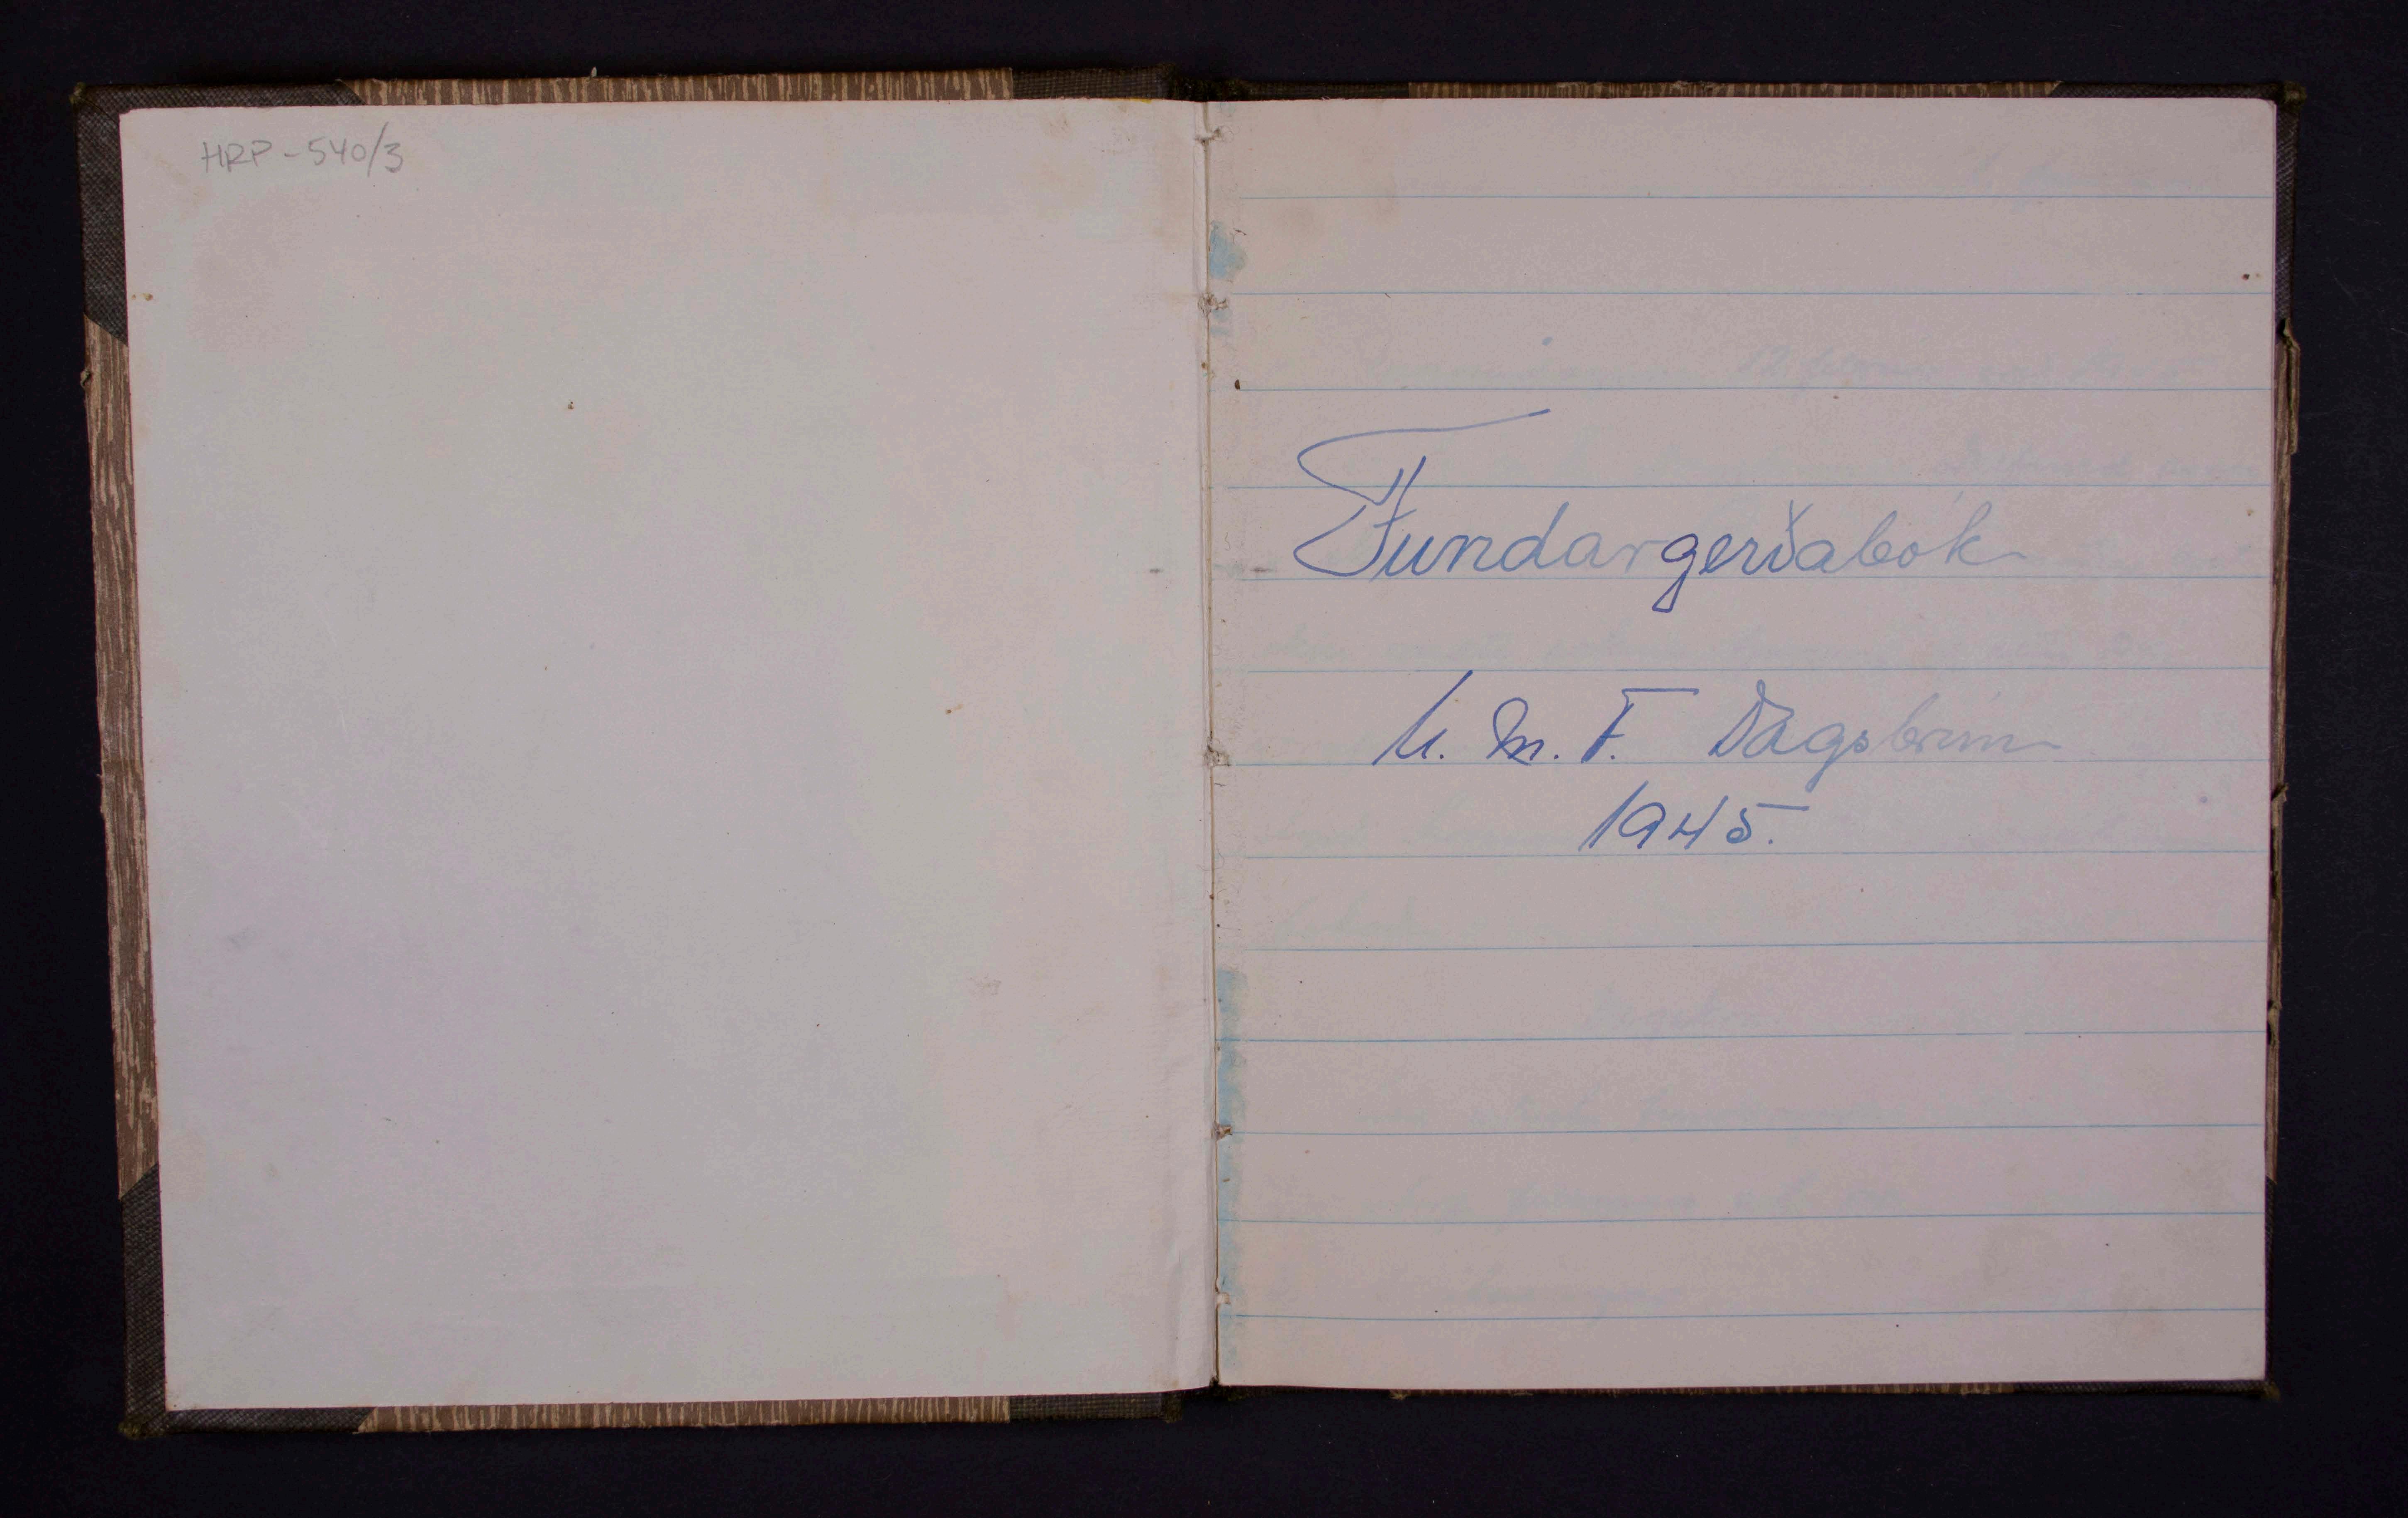 HRP-540/3
Fundargerðabók
U. M. F. Dagsbrún
1945.